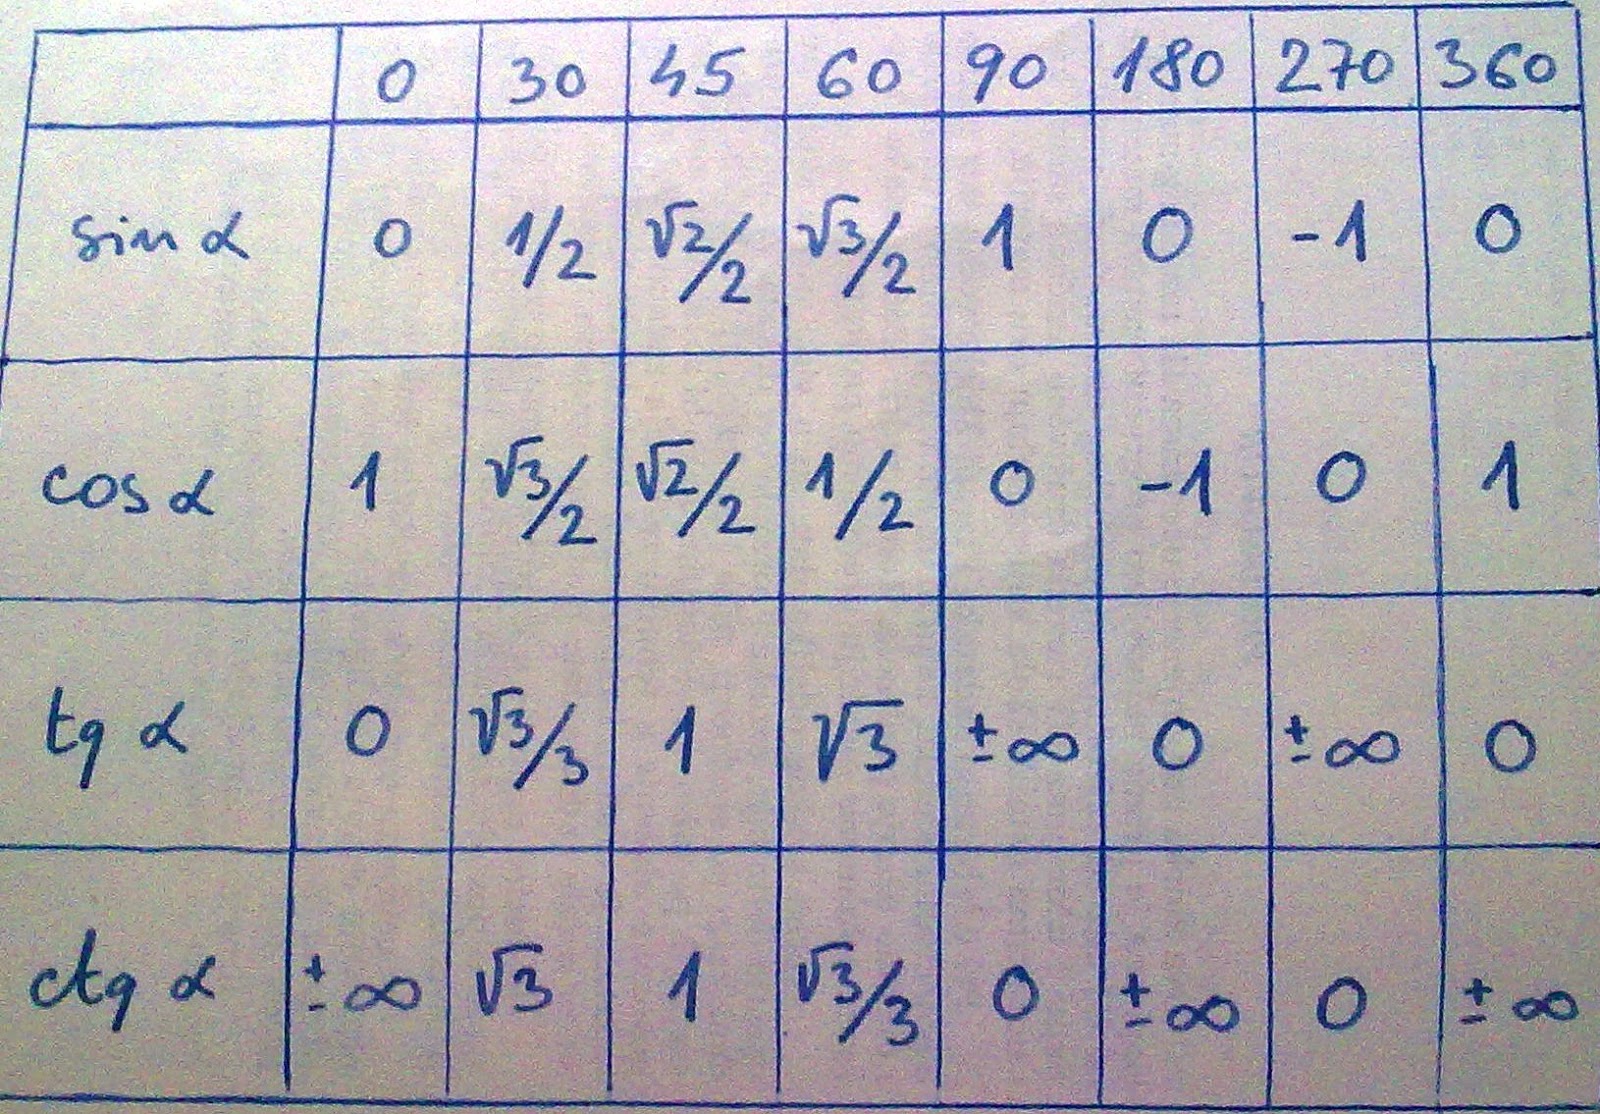 0 30 45 60 90 180 270 360
sin α 0 1/2 √2/2 √3/2 1 0 -1 0
cos α 1 √3/2 √2/2 1/2 0 -1 0 1
tg α 0 √3/3 1 √3 ±∞ 0 ±∞ 0
ctg α ±∞ √3 1 √3/3 0 ±∞ 0 ±∞